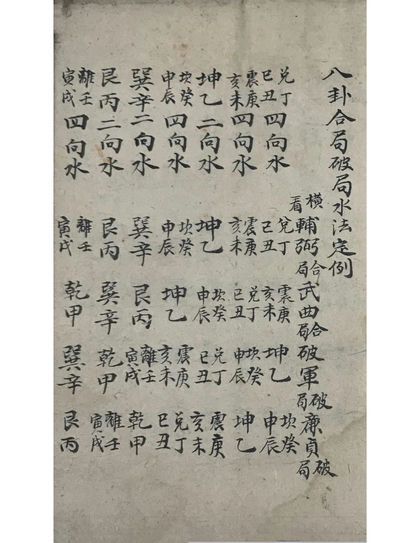 八卦合局破局水法定例
横看 輔弼合局 武曲合局 破軍破局 廉貞破局
兌丁巳丑四向水 兌丁巳丑 震庚亥未 坤乙 坎癸申辰
震庚亥未四向水 震庚亥未 兌丁巳丑 坎癸申辰 坤乙
坤乙二向水 坤乙 坎癸申辰 兌丁巳丑 震庚亥未
坎癸申辰四向水 坎癸申辰 坤乙 震庚亥未 兌丁巳丑
巽辛二向水 巽辛 艮丙 離壬寅戌 乾甲
艮丙二向水 艮丙 巽辛 乾甲 離壬寅戌
離壬寅戌四向水 離壬寅戌 乾甲 巽辛 艮丙